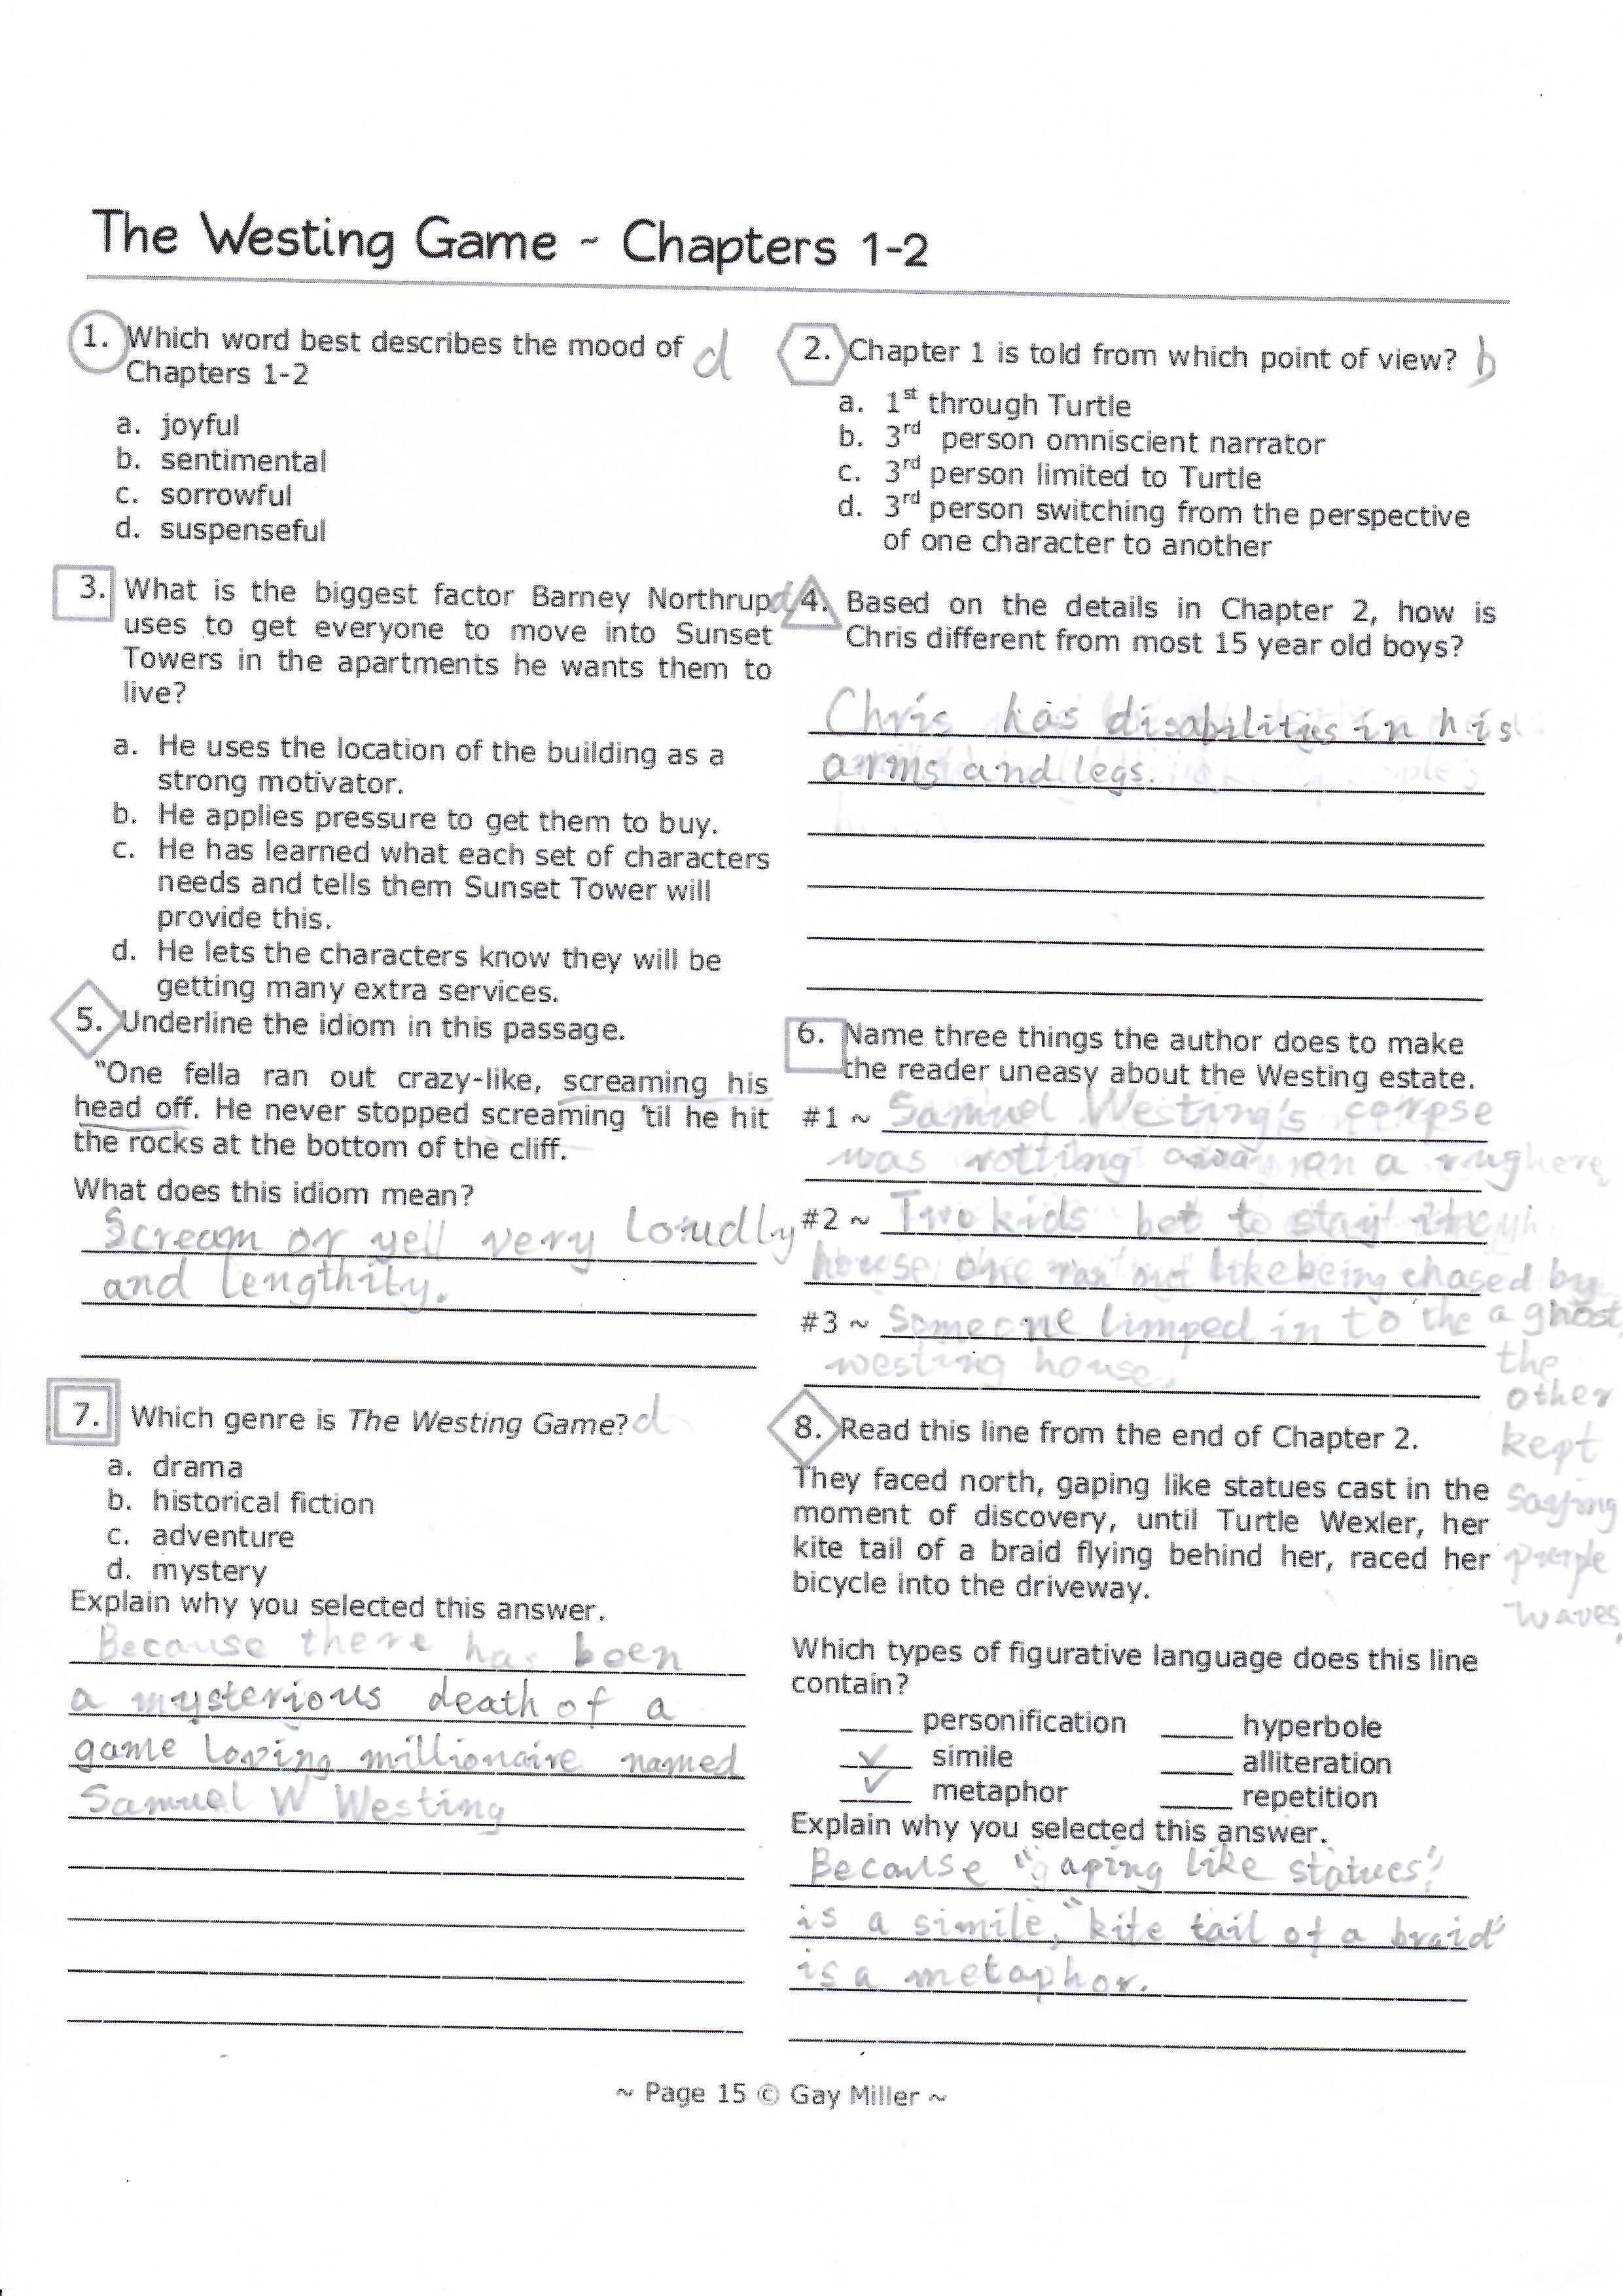 The Westing Game ~ Chapters 1-2
1. Which word best describes the mood of d
Chapters 1-2
a. joyful
b. sentimental
c. sorrowful
d. suspenseful
2. Chapter 1 is told from which point of view? b
a. 1st through Turtle
b. 3rd person omniscient narrator
c. 3rd person limited to Turtle
d. 3rd person switching from the perspective
of one character to another
3. What is the biggest factor Barney Northrup d
uses to get everyone to move into Sunset
Towers in the apartments he wants them to
live?
a. He uses the location of the building as a
strong motivator.
b. He applies pressure to get them to buy.
c. He has learned what each set of characters
needs and tells them Sunset Tower will
provide this.
d. He lets the characters know they will be
getting many extra services.
4. Based on the details in Chapter 2, how is
Chris different from most 15 year old boys?
Chris has disabilities in his
arms and legs.
5. Underline the idiom in this passage.
"One fella ran out crazy-like, screaming his
head off. He never stopped screaming 'til he hit
the rocks at the bottom of the cliff.
What does this idiom mean?
Scream or yell very loudly
and lengthily.
6. Name three things the author does to make
the reader uneasy about the Westing estate.
#1 ~ Samuel Westing's corpse
was rotting away on a rug
#2 ~ Two kids bet to stay
house one ran out like being chased by
a ghost,
the
other
kept
saying
purple
waves,
#3 ~ Someone limped in to the
westing house.
7. Which genre is The Westing Game? d
a. drama
b. historical fiction
c. adventure
d. mystery
Explain why you selected this answer.
Because there has been
a mysterious death of a
game loving millionaire named
Samuel W Westing
8. Read this line from the end of Chapter 2.
They faced north, gaping like statues cast in the
moment of discovery, until Turtle Wexler, her
kite tail of a braid flying behind her, raced her
bicycle into the driveway.
Which types of figurative language does this line
contain?
____ personification ____ hyperbole
✓ simile ____ alliteration
✓ metaphor ____ repetition
Explain why you selected this answer.
Because "gaping like statues"
is a simile, "kite tail of a braid"
is a metaphor.
~ Page 15 © Gay Miller ~